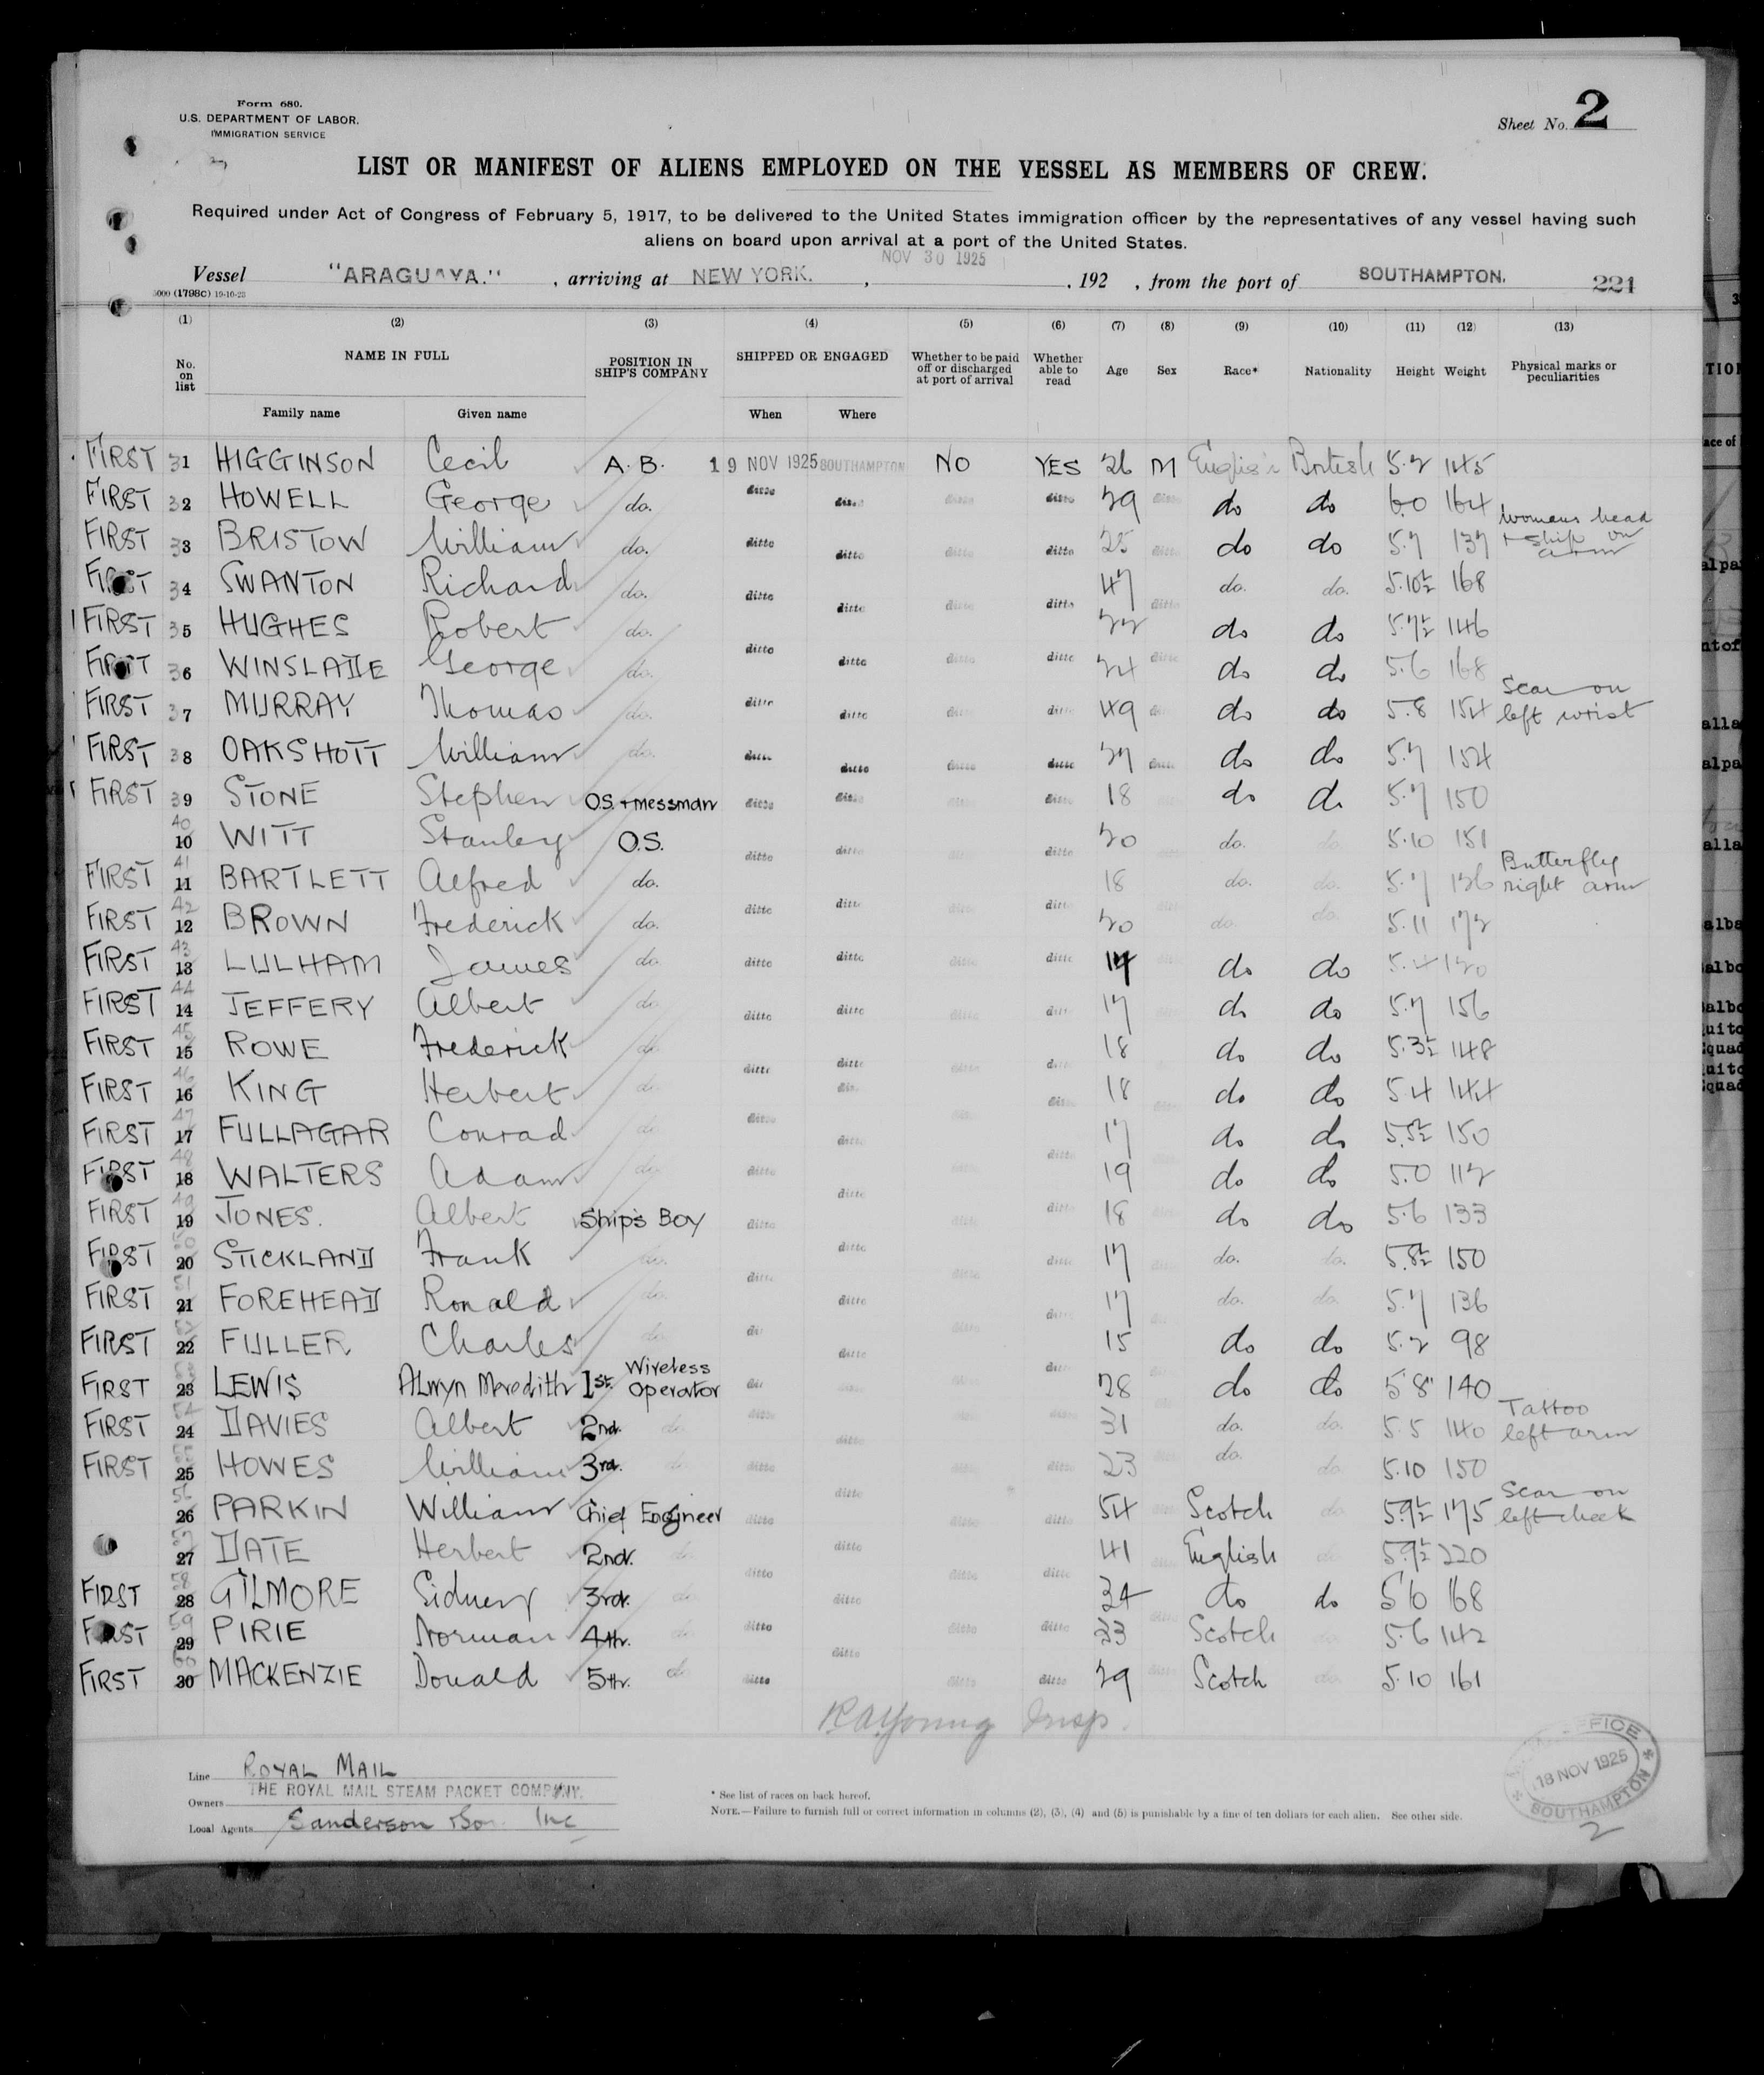 Form 680.
U.S. DEPARTMENT OF LABOR.
IMMIGRATION SERVICE
Sheet No. 2
LIST OR MANIFEST OF ALIENS EMPLOYED ON THE VESSEL AS MEMBERS OF CREW.
Required under Act of Congress of February 5, 1917, to be delivered to the United States immigration officer by the representatives of any vessel having such
aliens on board upon arrival at a port of the United States.
NOV 30 1925
Vessel "ARAGUAYA." , arriving at NEW YORK. , , 192 , from the port of SOUTHAMPTON. 221
5000 (1798C) 19-10-25
(1) (2) (3) (4) (5) (6) (7) (8) (9) (10) (11) (12) (13)
No. on list NAME IN FULL POSITION IN SHIP'S COMPANY SHIPPED OR ENGAGED Whether to be paid off or discharged at port of arrival Whether able to read Age Sex Race* Nationality Height Weight Physical marks or peculiarities
Family name Given name When Where
FIRST 31 HIGGINSON Cecil A.B. 19 NOV 1925 SOUTHAMPTON NO YES 26 M English British 5.2 145
FIRST 32 HOWELL George do. ditto ditto ditto ditto 29 ditto do do 6.0 164
FIRST 33 BRISTOW William do. ditto ditto ditto ditto 25 ditto do do 5.7 137 Womans head + ship on arm
FIRST 34 SWANTON Richard do. ditto ditto ditto ditto 47 ditto do. do. 5.10½ 168
FIRST 35 HUGHES Robert do. ditto ditto ditto ditto 22 ditto do do 5.7½ 146
FIRST 36 WINSLADE George do. ditto ditto ditto ditto 24 ditto do do 5.6 168
FIRST 37 MURRAY Thomas do. ditto ditto ditto ditto 49 ditto do do 5.8 154 Scar on left wrist
FIRST 38 OAKSHOTT William do. ditto ditto ditto ditto 27 ditto do do 5.7 154
FIRST 39 STONE Stephen O.S. + messman ditto ditto ditto ditto 18 do do 5.7 150
40 10 WITT Stanley O.S. ditto ditto ditto 20 do. do. 5.10 151
FIRST 41 11 BARTLETT Alfred do. 18 do. do. 5.7 136 Butterfly right arm
FIRST 42 12 BROWN Frederick do. ditto ditto ditto 20 do. do. 5.11 172
FIRST 43 13 LULHAM James do. ditto ditto ditto ditto do do 5.4 120
FIRST 44 14 JEFFERY Albert do. ditto ditto ditto ditto 17 do do 5.7 156
FIRST 45 15 ROWE Frederick do. ditto ditto ditto 18 do do 5.3½ 148
FIRST 46 16 KING Herbert do. ditto ditto 18 do do 5.4 144
FIRST 47 17 FULLAGAR Conrad do. ditto ditto ditto 17 do do 5.5½ 150
FIRST 48 18 WALTERS Adam do. ditto ditto ditto 19 do do 5.0 112
FIRST 49 19 JONES. Albert Ship's Boy ditto ditto ditto 18 do do 5.6 133
FIRST 50 20 STICKLAND Frank do. ditto ditto ditto 17 do. do. 5.8½ 150
FIRST 51 21 FOREHEAD Ronald do. ditto ditto ditto 17 do. do. 5.7 136
FIRST 22 FULLER Charles do. ditto ditto 15 do do 5.2 98
FIRST 23 LEWIS Alwyn Meredith 1st. Wireless Operator ditto ditto 28 do do 5 8" 140
FIRST 54 24 DAVIES Albert 2nd. do. ditto ditto 31 do. do. 5.5 140 Tattoo left arm
FIRST 55 25 HOWES William 3rd. do. ditto ditto ditto 23 do. do. 5.10 150
56 26 PARKIN William Chief Engineer ditto ditto ditto ditto 54 Scotch do. 5.9½ 175 Scar on left cheek
57 27 DATE Herbert 2nd. do. ditto ditto ditto 41 English do 5.9½ 220
FIRST 58 28 GILMORE Sidney 3rd. do. ditto ditto ditto ditto 34 do do 5 10 168
FIRST 59 29 PIRIE Norman 4th. do. ditto ditto ditto ditto 23 Scotch do. 5.6 142
FIRST 60 30 MACKENZIE Donald 5th. do. ditto ditto ditto 29 Scotch do. 5.10 161
R A Young Insp.
Line ROYAL MAIL
Owners THE ROYAL MAIL STEAM PACKET COMPANY.
Local Agents Sanderson & Son Inc
* See list of races on back hereof.
NOTE.—Failure to furnish full or correct information in columns (2), (3), (4) and (5) is punishable by a fine of ten dollars for each alien. See other side.
OFFICE
18 NOV 1925
SOUTHAMPTON
2